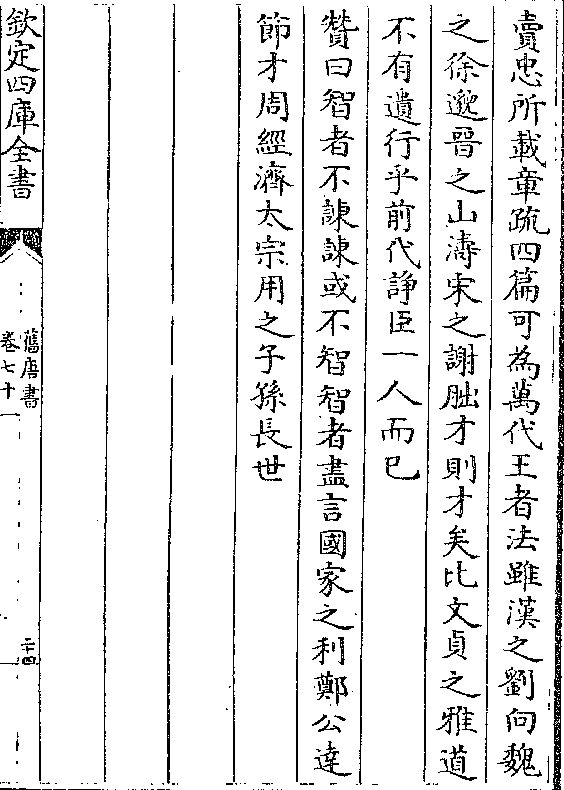 賣忠所載章疏四篇可為萬代王者法雖漢之劉向魏
之徐邈晉之山濤宋之謝朏才則才矣比文貞之雅道
不有遺行乎前代諍臣一人而已
贊曰智者不諫諫或不智智者盡言國家之利鄭公達
節才周經濟太宗用之子孫長世
欽定四庫全書
舊唐書
卷七十一
二十四